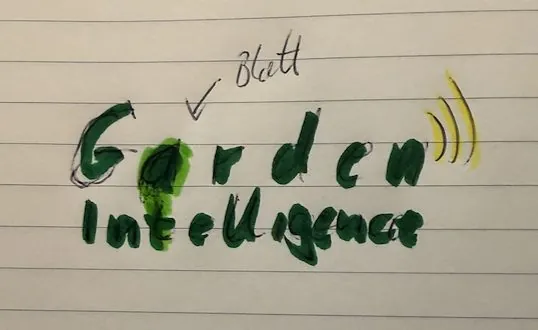 Blatt
Garden
Intelligence